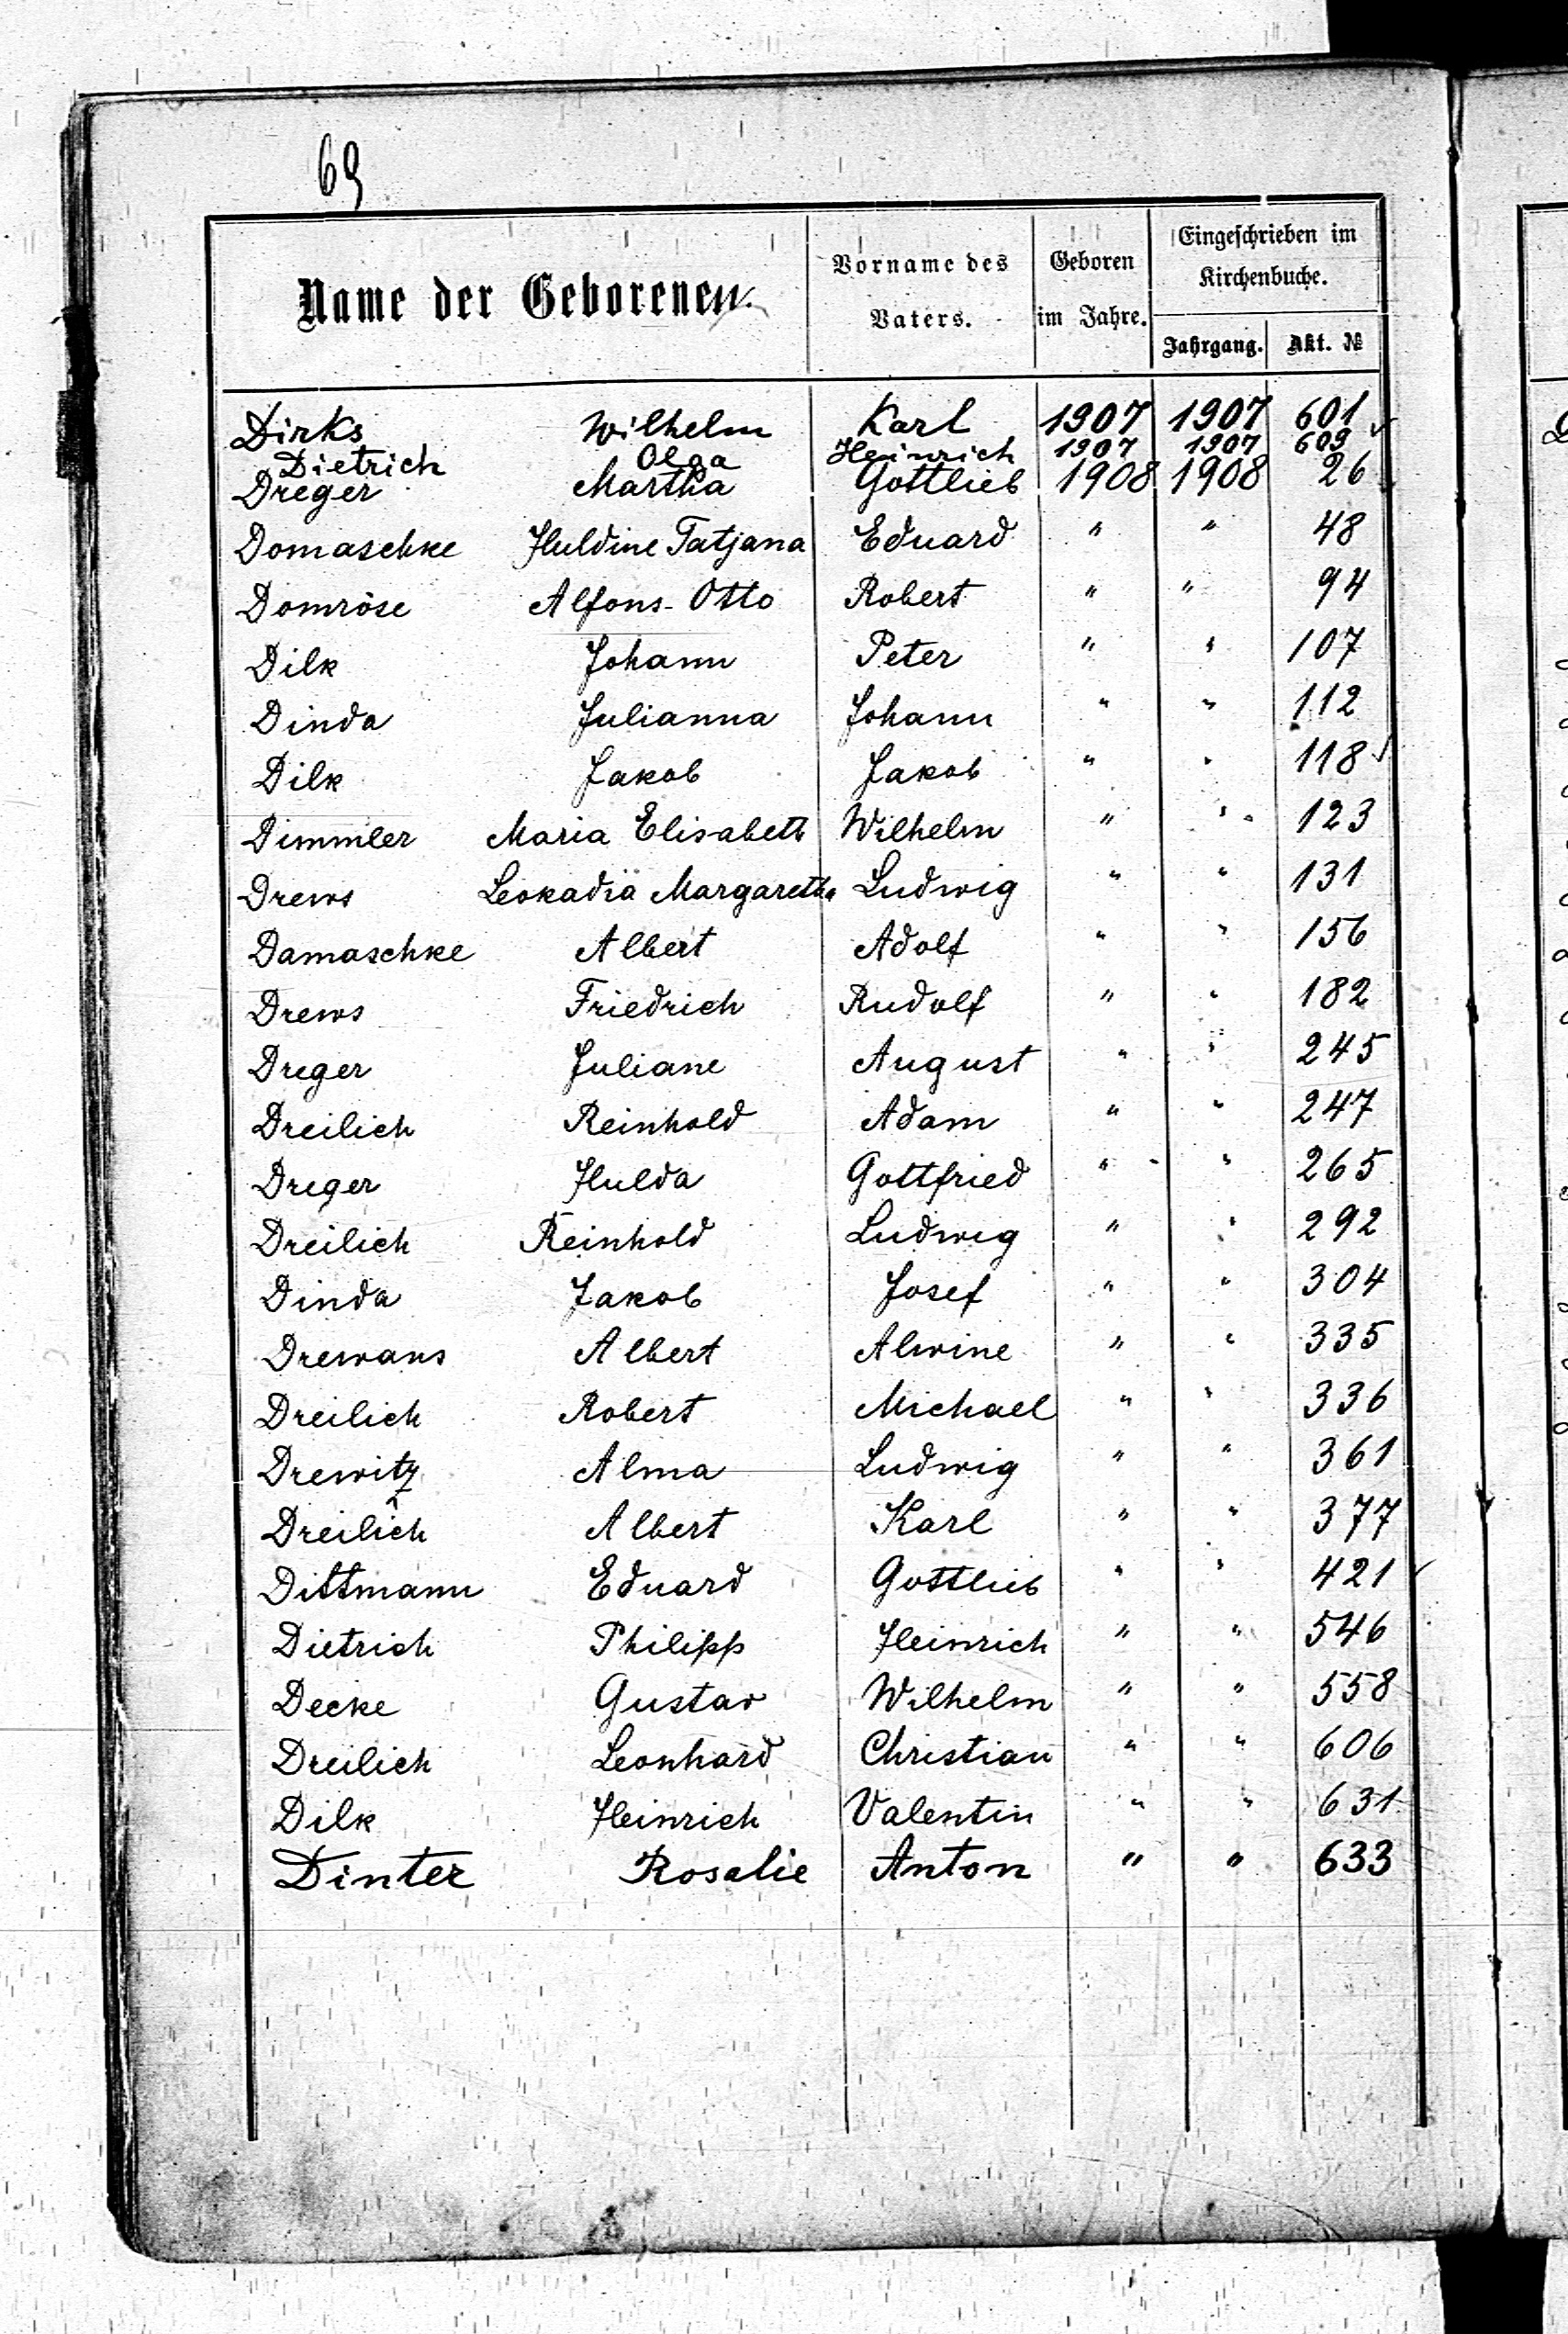 69
Name der Geborenen.
Vorname des Vaters.
Geboren im Jahre.
Eingeschrieben im Kirchenbuche.
Jahrgang. Akt. №
Dirks Wilhelm Karl 1907 1907 601
Dietrich Olga Heinrich 1907 1907 609
Dreger Martha Gottlieb 1908 1908 26
Domaschke Huldine Tatjana Eduard " " 48
Domröse Alfons-Otto Robert " " 94
Dilk Johann Peter " " 107
Dinda Julianna Johann " " 112
Dilk Jakob Jakob " " 118
Dimmler Maria Elisabeth Wilhelm " " 123
Drews Leokadia Margaretha Ludwig " " 131
Damaschke Albert Adolf " " 156
Drews Friedrich Rudolf " " 182
Dreger Juliane August " " 245
Dreilich Reinhold Adam " " 247
Dreger Hulda Gottfried " " 265
Dreilich Reinhold Ludwig " " 292
Dinda Jakob Josef " " 304
Drewans Albert Alwine " " 335
Dreilich Robert Michael " " 336
Drewitz Alma Ludwig " " 361
Dreilich Albert Karl " " 377
Dittmann Eduard Gottlieb " " 421
Dietrich Philipp Heinrich " " 546
Decke Gustav Wilhelm " " 558
Dreilich Leonhard Christian " " 606
Dilk Heinrich Valentin " " 631
Dinter Rosalie Anton " " 633